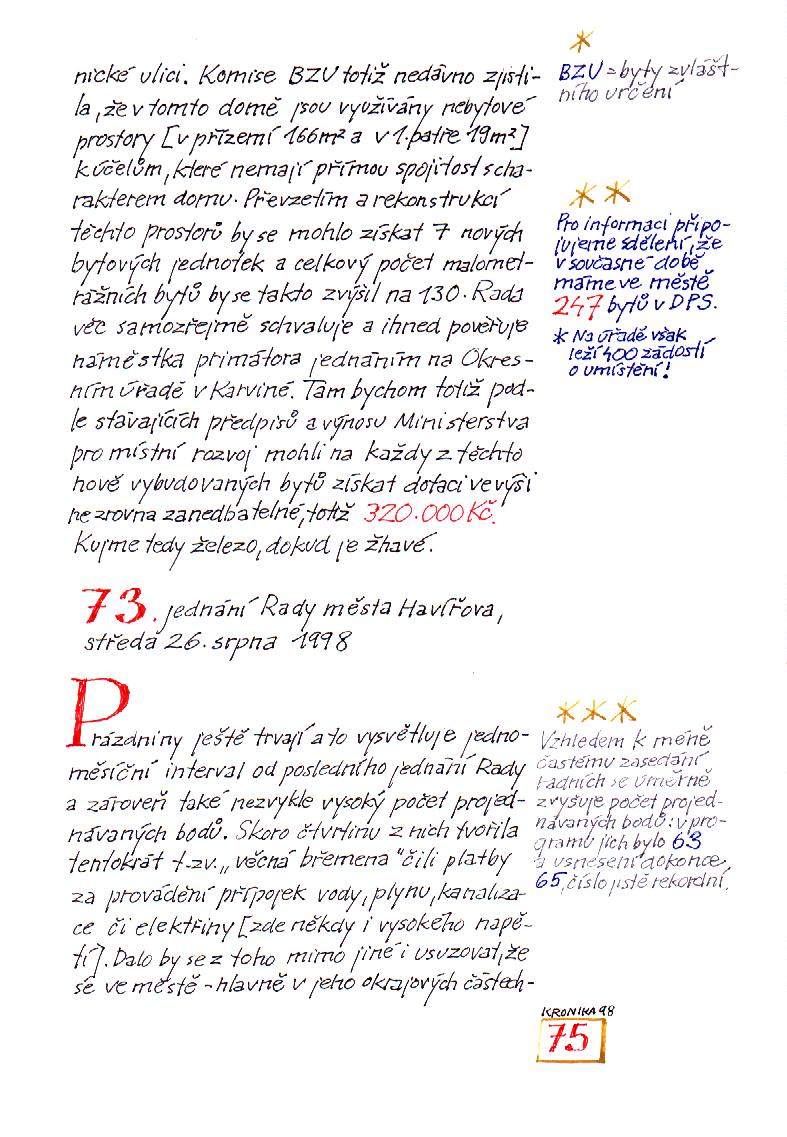 nické ulici. Komise BZU totiž nedávno zjisti-
la, že v tomto domě jsou využívány nebytové
prostory [v přízemí 166m² a v 1. patře 19m²]
k účelům, které nemají přímou spojitost s cha-
rakterem domu. Převzetím a rekonstrukcí
těchto prostorů by se mohlo získat 7 nových
bytových jednotek a celkový počet malomet-
rážních bytů by se takto zvýšil na 130. Rada
věc samozřejmě schvaluje a ihned pověřuje
náměstka primátora jednáním na Okres-
ním úřadě v Karviné. Tam bychom totiž pod-
le stávajících předpisů a výnosu Ministerstva
pro místní rozvoj mohli na každý z těchto
nově vybudovaných bytů získat dotaci ve výši
ne zrovna zanedbatelné, totiž 320.000 Kč.
Kujme tedy železo, dokud je žhavé.
73. jednání Rady města Havířova,
středa 26. srpna 1998
Prázdniny ještě trvají a to vysvětluje jedno-
měsíční interval od posledního jednání Rady
a zároveň také nezvykle vysoký počet projed-
návaných bodů. Skoro čtvrtinu z nich tvořila
tentokrát t.zv. „věcná břemena" čili platby
za provádění přípojek vody, plynu, kanaliza-
ce či elektřiny [zde někdy i vysokého napě-
tí]. Dalo by se z toho mimo jiné i usuzovat, že
se ve městě - hlavně v jeho okrajových částech-
*
BZU = byty zvlášt-
ního určení
* *
Pro informaci připo-
jujeme sdělení, že
v současné době
máme ve městě
247 bytů v DPS.
* Na úřadě však
leží 400 žádostí
o umístění!
* * *
Vzhledem k méně
častému zasedání
radních se úměrně
zvyšuje počet projed-
návaných bodů: v pro-
gramu jich bylo 63
a usnesení dokonce
65, číslo jistě rekordní.
KRONIKA 98
75